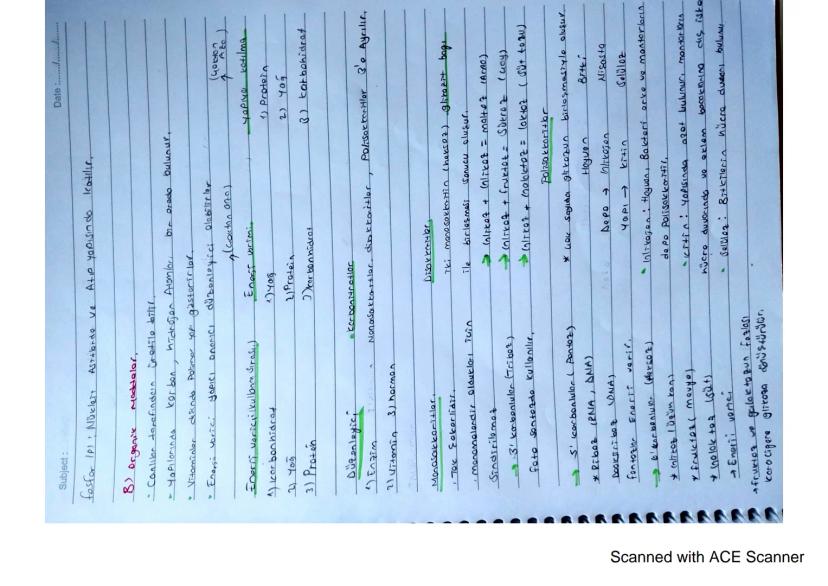 Subject: Date:
fosfor (P): Nükleik Asitlerde ve Atp yapısında katılır.
B) Organik Maddeler
• Canlılar tarafından üretile bilir.
• Yapılarında karbon, hidrojen Atomları bir arada bulunur.
• Vitaminler dışında Polimer yapı gösterirler.
• Enerji verici yapıcı onarıcı düzenleyici olabilirler
Enerji verici (kullanım sırası)
1) Karbonhidrat
2) Yağ
3) Protein
Enerji verimi (Çoktan aza)
1) Yağ
2) Protein
3) Karbonhidrat
Yapıya katılma (Çoktan Aza)
1) Protein
2) Yağ
3) Karbonhidrat
Düzenleyici
1) Enzim
2) Vitamin 3) hormon
• Karbonhidratlar
Monosakkaritler, disakkaritler, Polisakkaritler 3'e Ayrılır.
Monosakkaritler
• Tek şekerlidir.
monomerlerdir oldukları için
Sindirilmez
→ 3' karbonlular (Trioz)
Foto sentezde kullanılır.
→ 5' karbonlular (Pentoz)
* Riboz (RNA, DNA)
Deoksiriboz (DNA)
Pentozlar Enerji verir.
→ 6' karbonlular (Heksoz)
* Glikoz (Üzüm, kan)
* Fruktoz (meyve)
* Galaktoz (Süt)
→ Enerji verici
→ Fruktoz ve galaktozun fazlası
karaciğere glikoza dönüştürülür.
Disakkaritler
İki monosakkaritin (heksoz) glikozit bağı
ile birleşmesi sonucu oluşur.
→ Glikoz + Glikoz = maltoz (Arpa)
→ Glikoz + fruktoz = Sükroz (Çay)
→ Glikoz + Galaktoz = laktoz (Süt tozu)
Polisakkaritler
* Çok sayıda glikozun birleşmesiyle oluşur.
Hayvan Bitki
Depo → Glikojen Nişasta
Yapı → kitin Selüloz
• Glikojen: Hayvan, Bakteri, arke ve mantarların
depo Polisakkariti.
• Kitin: Yapısında azot bulunur, mantarların
hücre duvarında ve eklem bacaklıların dış iske
• Selüloz: Bitkilerin hücre duvarı bulunu
Scanned with ACE Scanner